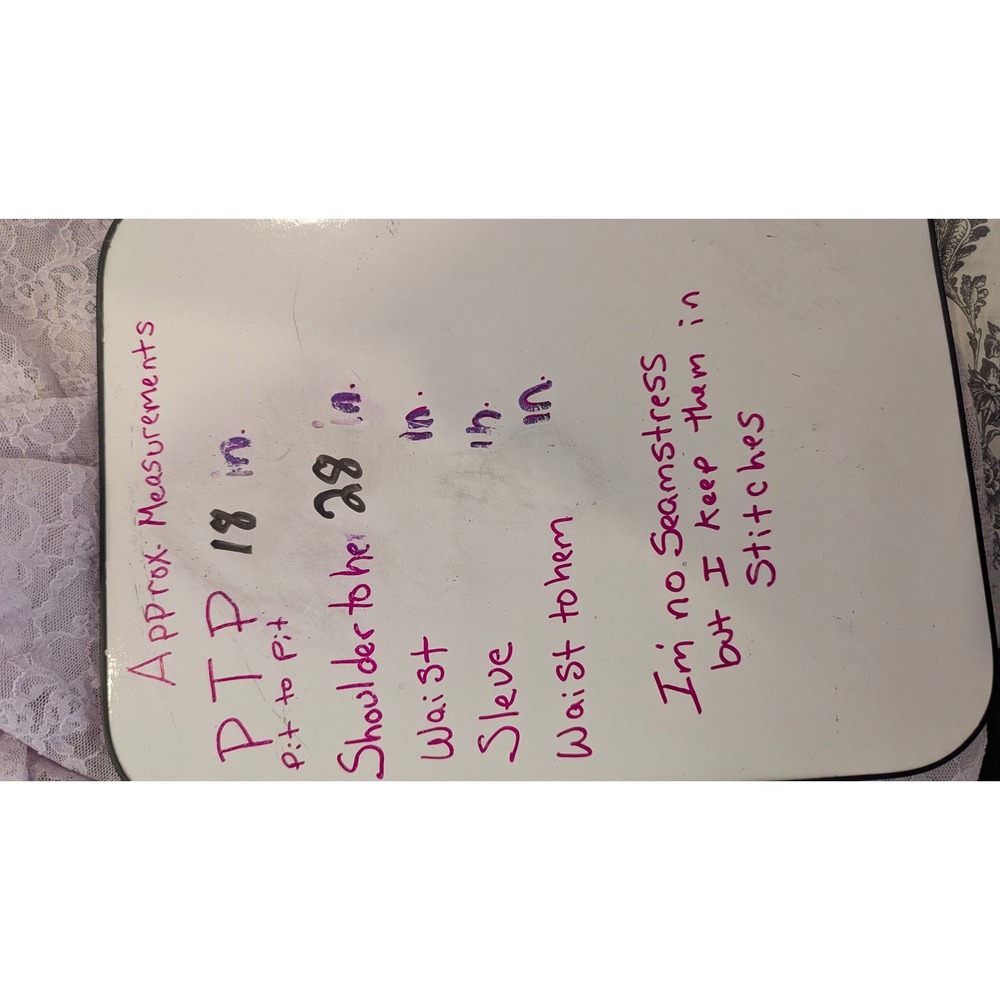 Approx. Measurements
PTP 18 in.
Pit to Pit
Shoulder to he 28 in.
Waist in.
Sleve in.
Waist to hem in.
I'm no Seamstress
but I keep them in
Stitches